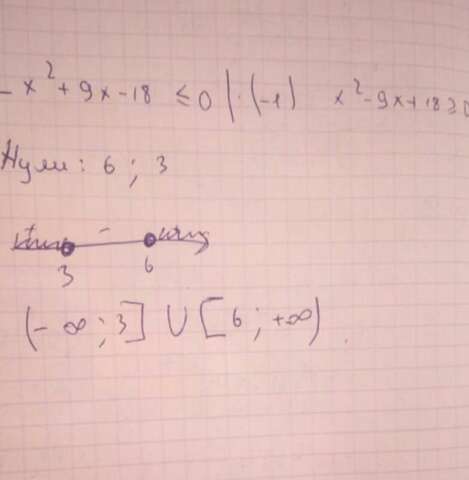 - x² + 9x - 18 ≤ 0 | · (-1) x² - 9x + 18 ≥ 0
Нули: 6 ; 3
+ - +
3 6
(- ∞ ; 3] ∪ [6 ; +∞)